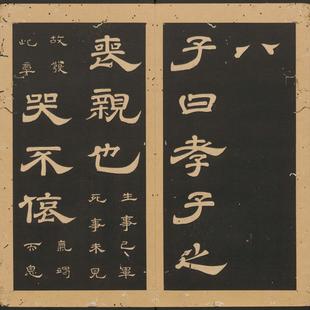 八
子曰孝子之
喪親也
生事已畢
死事未見
故發
此章
哭不偯
氣竭
而息